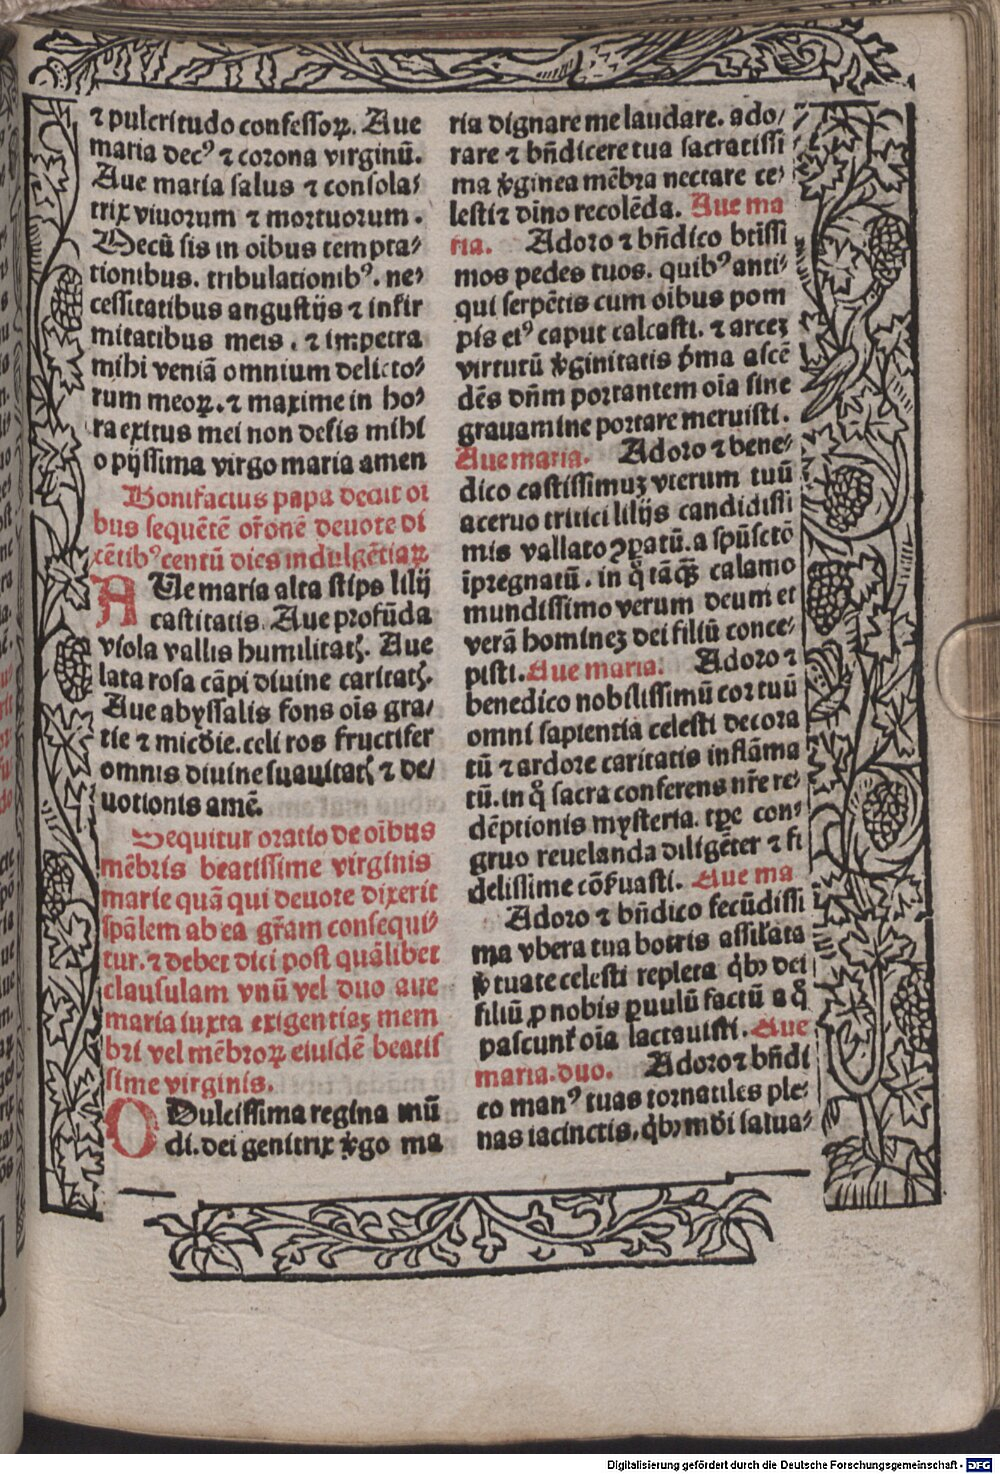 ⁊ pulcritudo confessoꝝ. Aue
maria decꝰ ⁊ corona virginū.
Aue maria salus ⁊ consola⸗
trix viuorum ⁊ mortuorum.
Decū sis in oībus tempta⸗
tionibus. tribulationibꝰ. ne⸗
cessitatibus angustijs ⁊ infir
mitatibus meis. ⁊ impetra
mihi veniā omnium delicto⸗
rum meoꝝ. ⁊ maxime in ho⸗
ra exitus mei non desis mihi
o pijssima virgo maria amen
Bonifacius papa decit oī
bus sequētē or̄onē deuote di
cētibꝰ centū dies indulgētiaꝝ
AUe maria alta stips lilij
castitatis. Aue profūda
viola vallis humilitatꝭ. Aue
lata rosa cāpi diuine caritatꝭ.
Aue abyssalis fons oīs gra/
tie ⁊ mīcdie. celi ros fructifer
omnis diuine suauitatꝭ ⁊ de/
uotionis amē.
Sequitur oratio de oībus
mēbris beatissime virginis
marie quā qui deuote dixerit
spālem ab ea gr̄am consequi⸗
tur. ⁊ debet dici post quālibet
clausulam vnū vel duo aue
maria iuxta exigentiaꝫ mem
bri vel mēbroꝝ eiusdē beatis
sime virginis.
O Dulcissima regina mū
di. dei genitrix v̄go ma
ria dignare me laudare. ado/
rare ⁊ bn̄dicere tua sacratissi
ma v̄ginea mēbra nectare ce⸗
lesti ⁊ dīno recolēda. Aue ma
ria. Adoro ⁊ bn̄dico btīssi
mos pedes tuos. quibꝰ anti⸗
qui serpētis cum oībus pom
pis eiꝰ caput calcasti. ⁊ arceꝫ
virtutū v̄ginitatis p̄ma ascē
dēs dn̄m portantem oīa sine
grauamine portare meruisti.
Aue maria. Adoro ⁊ bene⸗
dico castissimuꝫ vterum tuū
aceruo tritici lilijs candidissi
mis vallato ꝯꝑatū. a spūsctō
īpregnatū. in q̊ tāꝙ̄ calamo
mundissimo verum deum et
verā homineꝫ dei filiū conce⸗
pisti. Aue maria. Adoro ⁊
benedico nobilissimū cor tuū
omni sapientia celesti decora
tū ⁊ ardore caritatis inflāma
tū. in q̊ sacra conferens nr̄e re⸗
dēptionis mysteria. tp̄e con⸗
gruo reuelanda diligēter ⁊ fi
delissime cōẜuasti. Aue ma
Adoro ⁊ bn̄dico fecūdissi
ma vbera tua botris assil̓ata
v̄tuate celesti repleta q̄bꝫ dei
filiū ꝓ nobis ꝑuulū factū a q̊
pascunt̓ oīa lactauisti. Aue
maria. duo. Adoro ⁊ bn̄di
co manꝰ tuas tornatiles ple⸗
nas iacinctis. q̄bꝫ mūdi salua⸗
Digitalisierung gefördert durch die Deutsche Forschungsgemeinschaft - DFG